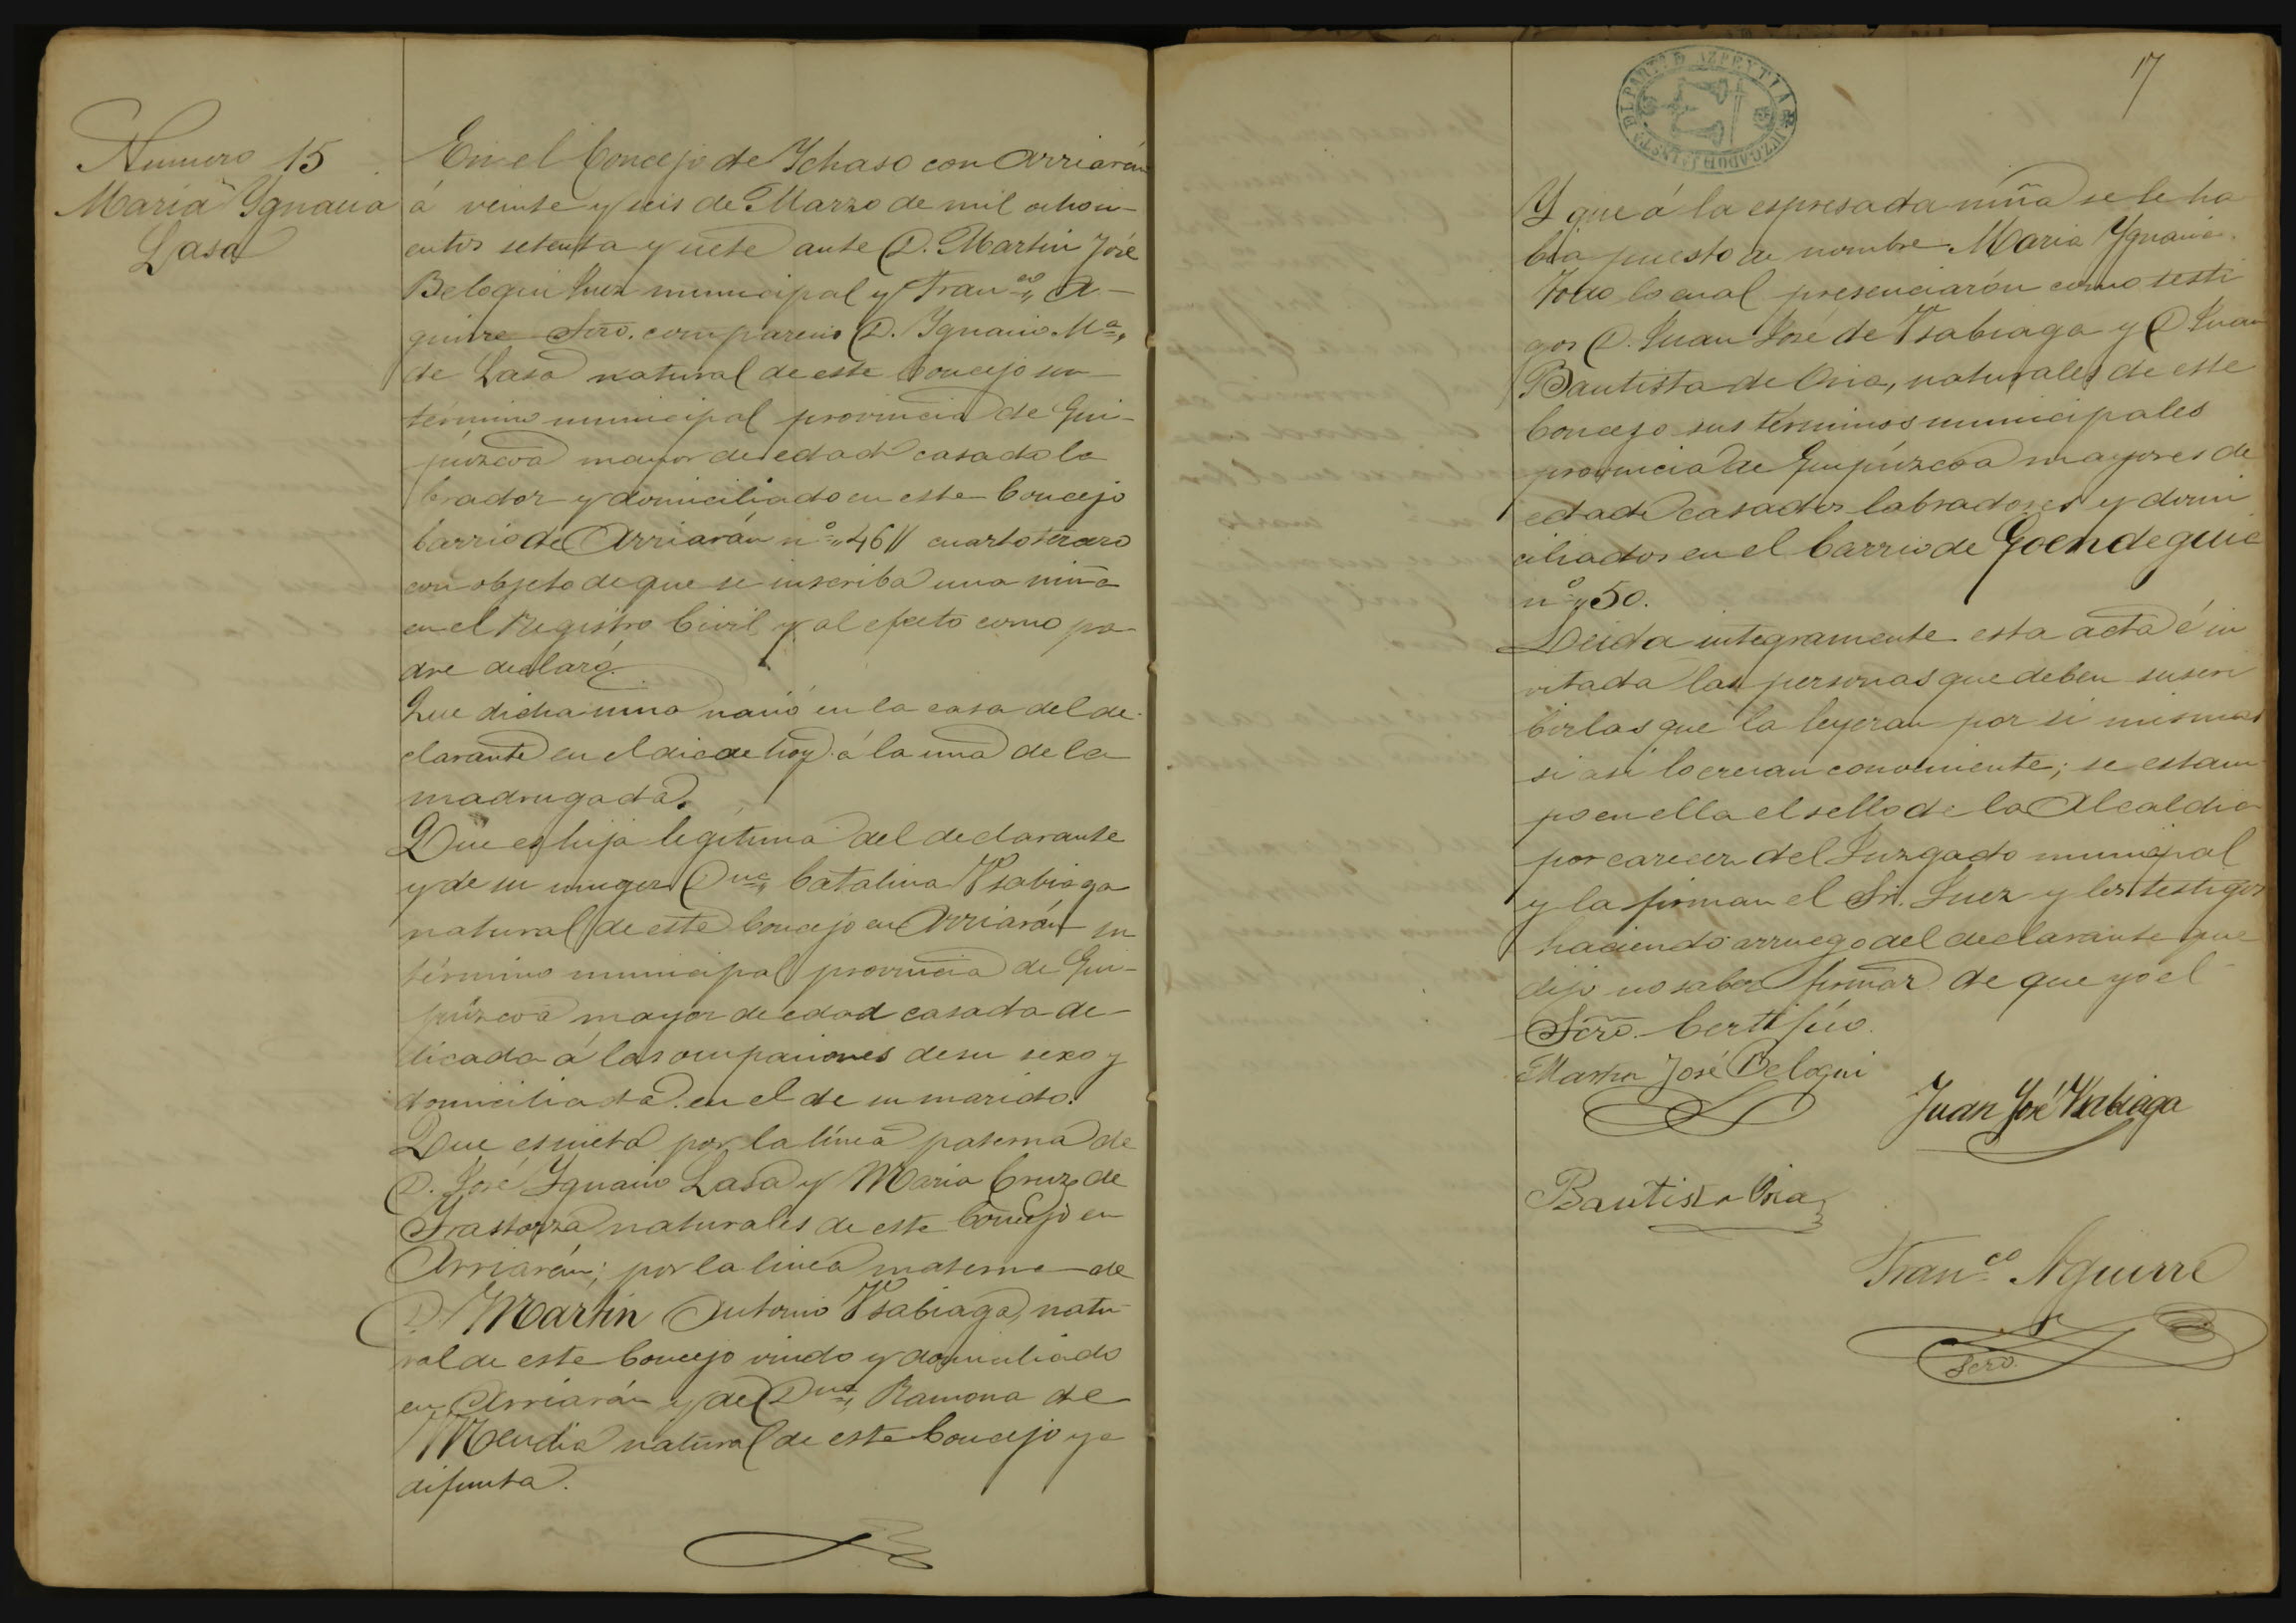 Numero 15
María Ygnacia
Lasa
En el Concejo de Ychaso con Arriarán
á veinte y seis de Marzo de mil ochoci-
entos setenta y siete ante D. Martin José
Beloqui Juez municipal y Fran.co A-
guirre Srio. comparecio D. Ygnacio M.a
de Lasa natural de este Concejo su
término municipal provincia de Gui-
púzcoa mayor de edad casado la
brador y domiciliado en este Concejo
barrio de Arriarán n.o 46 cuarto tercero
con objeto de que se inscriba una niña
en el Registro Civil y al efecto como pa-
dre declaró.
Que dicha niña nació en la casa del de-
clarante en el dia de hoy á la una de la
madrugada.
Que es hija legítima del declarante
y de su muger D.na Catalina Ysabiaga
natural de este Concejo en Arriarán su
término municipal provincia de Gui-
púzcoa mayor de edad casada de-
dicada á las ocupaciones de su sexo y
domiciliada en el de su marido.
Que es nieta por la línea paterna de
D. José Ygnacio Lasa y Maria Cruz de
Yrastorza naturales de este Concejo en
Arriarán; por la linea materna de
D. Martin Antonio Ysabiaga, natu-
ral de este Concejo viudo y domiciliado
en Arriarán y de D.na Ramona de
Mendia natural de este Concejo ya
difunta.
17
JUZGADO DE INST.A DEL PART.O DE AZPEYTIA
Y que á la espresada niña se le ha
bia puesto de nombre Maria Ygnacia.
Todo lo cual presenciarón como testi
gos D. Juan José de Ysabiaga y D Juan
Bautista de Oria, naturales de este
Concejo sus términos municipales
provincia de Guipúzcoa mayores de
edad casados labradores y domi
ciliados en el barrio de Goendeguia
n.o 50.
Leida integramente esta acta é in
vitada las personas que deben suscri
birlas que la leyeran por si mismas
si asi lo creian conveniente; se estam
po en ella el sello de la Alcaldia
por carecer del Juzgado municipal
y la firman el Sr. Juez y los testigos
haciendo arruego del declarante que
dijo no saber firmar de que yo el
Scrio. Certifico.
Martin José Beloqui
Juan José Ysabiaga
Bautista Oria
Fran.co Aguirre
Scrio.